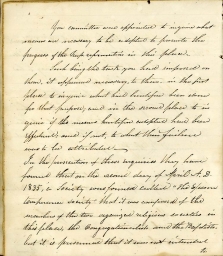 Your committee was appointed to inquire what
means are necessary to be adopted to promote the
progress of the Temperance reform in this place.
Such being the task you had imposed on
them, it appeared necessary, to them in the first
place to inquire what had heretofore been done
for that purpose, and in the second place to in
quire if the means heretofore adopted have been
effectual and if not, to what their failure
was to be attributed.
In the prosecution of these inquiries they have
found that on the second day of April A.D.
1835, a Society was formed called the
Temperance society that it was composed of the
members of the two organized religious societies in
this place, the Congregationalists and the Baptists,
but it is presumed that it was not intended
to